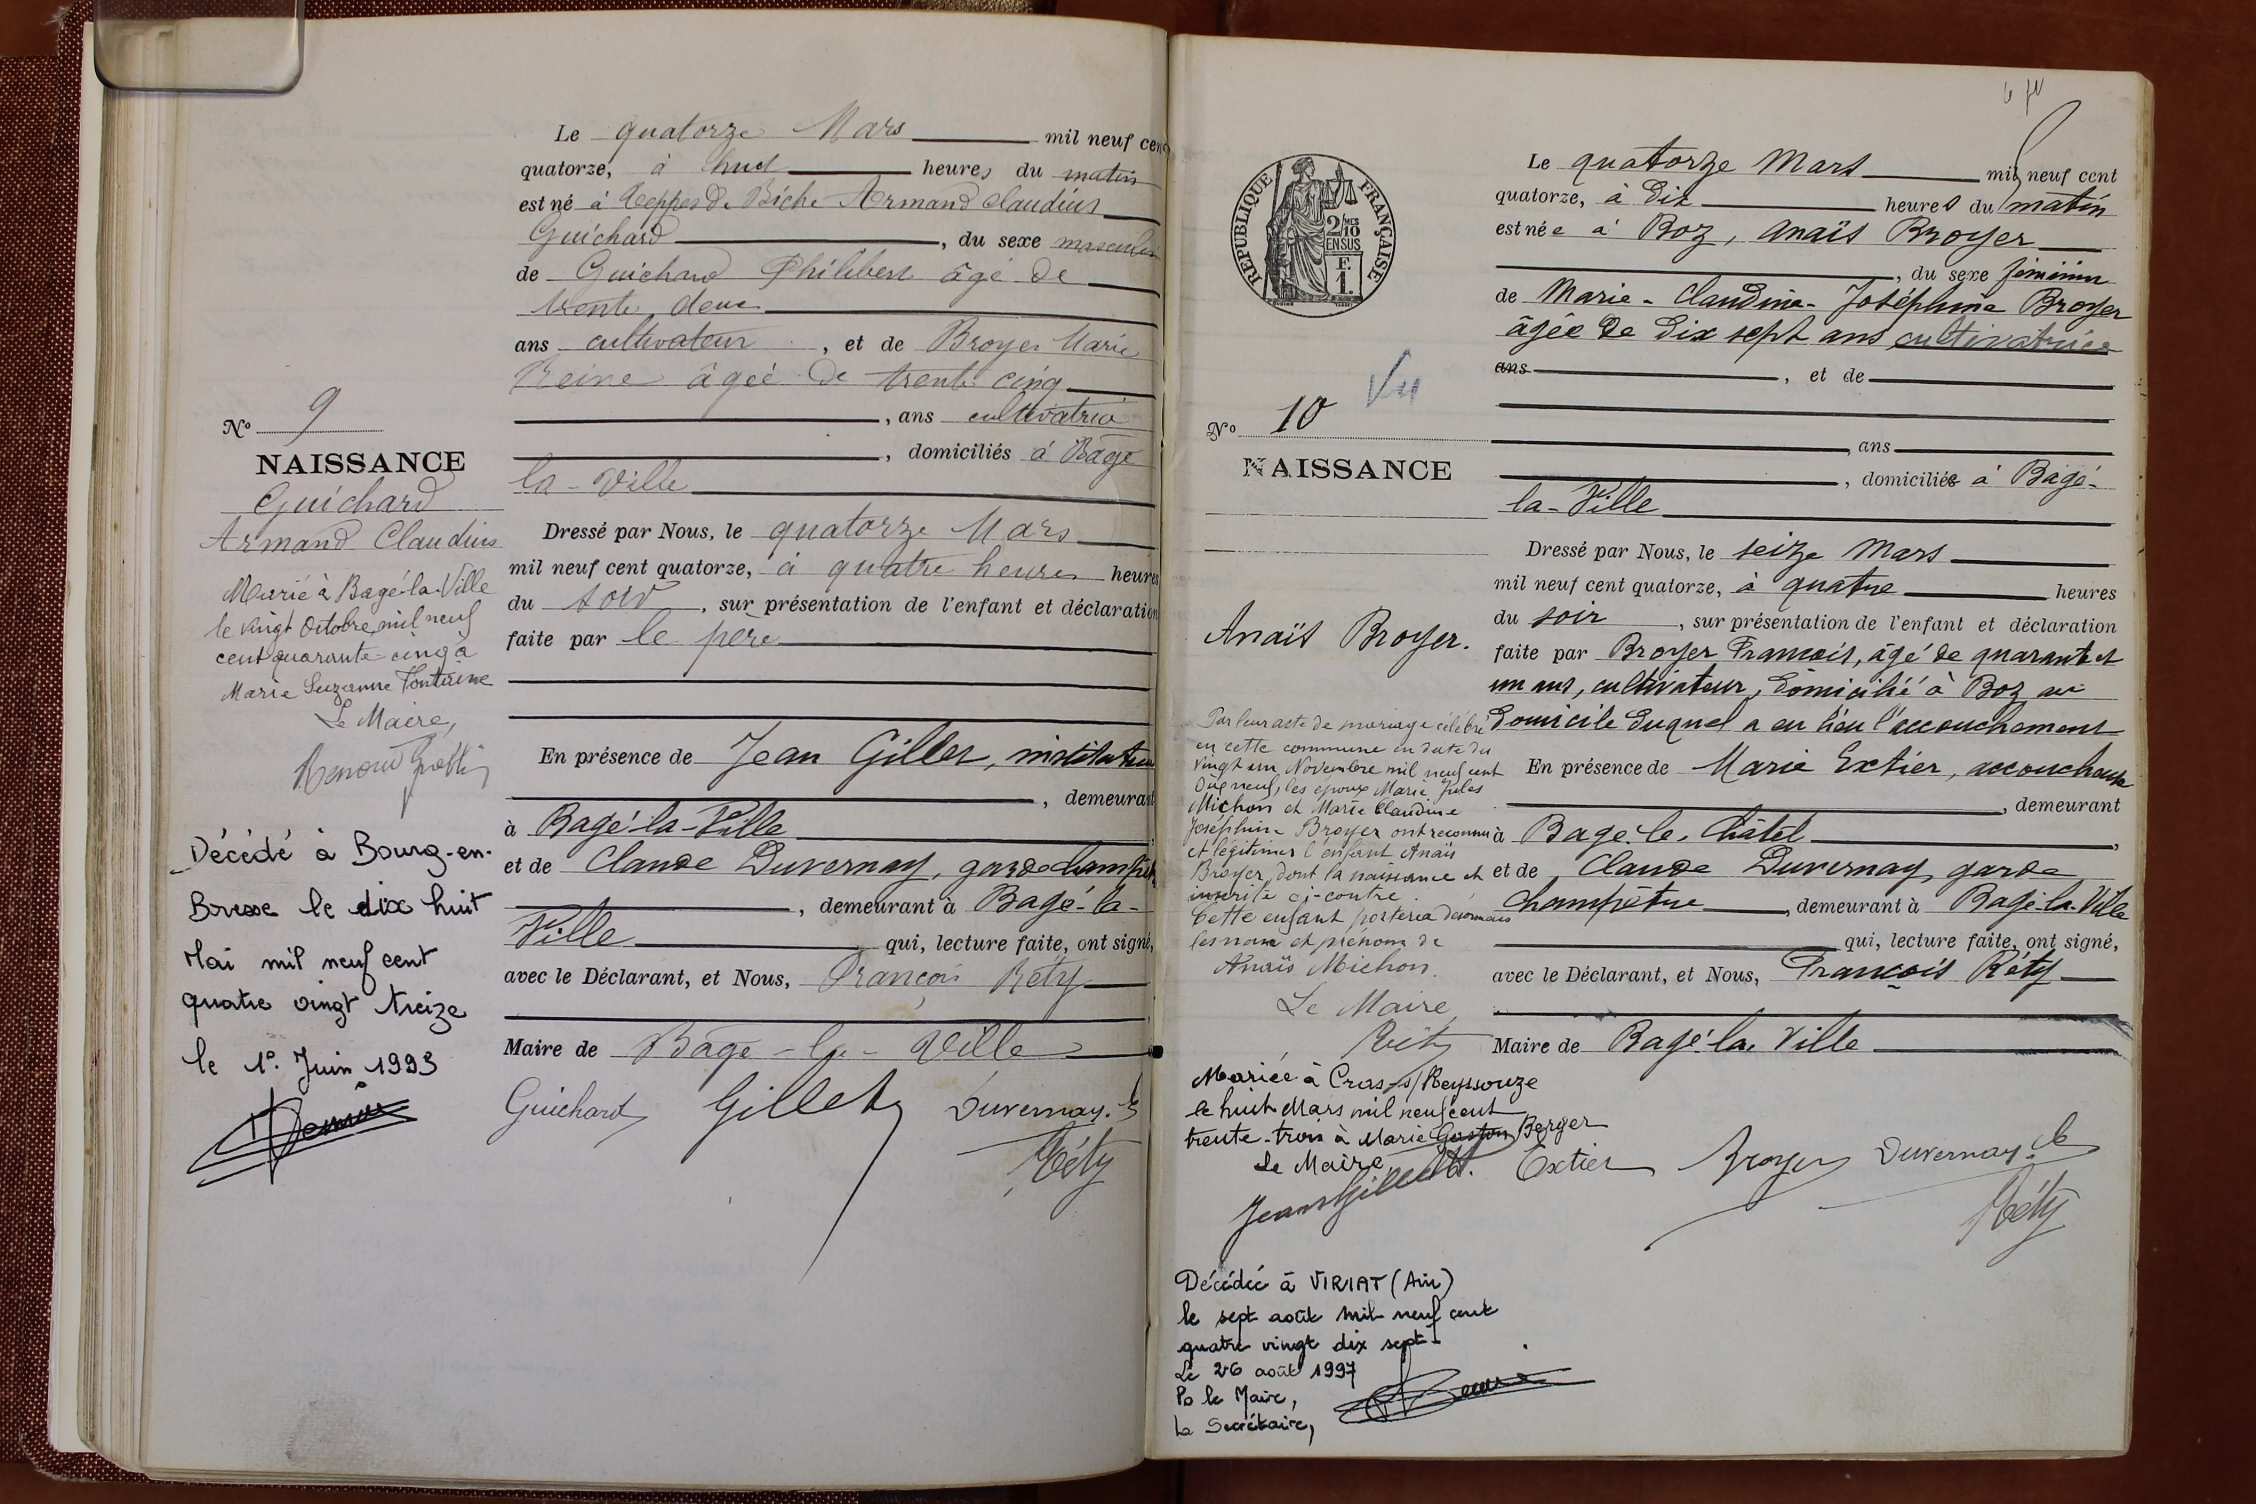 Le quatorze Mars mil neuf cent
quatorze, à huit heures du matin
est né à Teppes de Biche Armand Claudius
Guichard, du sexe masculin
de Guichard Philibert âgé de
trente deux
ans cultivateur, et de Broyer Marie
Reine âgée de trente cinq
, ans cultivatrice
, domiciliés à Bagé
la-Ville
Dressé par Nous, le quatorze Mars
mil neuf cent quatorze, à quatre heures heures
du soir, sur présentation de l'enfant et déclaration
faite par le père
En présence de Jean Gillet, instituteur
, demeurant
à Bagé-la-Ville
et de Claude Duvernay, garde champêtre
, demeurant à Bagé-la-
Ville qui, lecture faite, ont signé,
avec le Déclarant, et Nous, François Réty
Maire de Bagé-la-Ville
Guichard Gillet Duvernay. Cl
Réty
No 9
NAISSANCE
Guichard
Armand Claudius
Marié à Bagé-la-Ville
le vingt Octobre mil neuf
cent quarante-cinq à
Marie Suzanne
Le Maire,
Décédé à Bourg-en-
Bresse le dix huit
Mai mil neuf cent
quatre vingt treize
le 1º Juin 1993
RÉPUBLIQUE FRANÇAISE
2/10 MES
EN SUS
F.
1.
Le quatorze Mars mil neuf cent
quatorze, à dix heures du matin
est née à Boz, Anaïs Broyer
, du sexe féminin
de Marie-Claudine-Joséphine Broyer
âgée de dix sept ans cultivatrice
ans, et de
, ans
, domiciliée à Bagé-
la-Ville
Dressé par Nous, le seize Mars
mil neuf cent quatorze, à quatre heures
du soir, sur présentation de l'enfant et déclaration
faite par Broyer François, âgé de quarante et
un ans, cultivateur, domicilié à Boz au
domicile duquel a eu lieu l'accouchement
En présence de Marie Extier, accoucheuse
, demeurant
à Bagé-le-Châtel,
et de Claude Duvernay, garde
champêtre, demeurant à Bagé-la-Ville
qui, lecture faite, ont signé,
avec le Déclarant, et Nous, François Réty
Maire de Bagé-la-Ville
Extier Broyer Duvernay. Cl
Réty
Vu
No 10
NAISSANCE
Anaïs Broyer.
Par leur acte de mariage célébré
en cette commune en date du
vingt un Novembre mil neuf cent
dix neuf, les époux Marie Jules
Michon et Marie Claudine
Joséphine Broyer ont reconnu
et légitimer l'enfant Anaïs
Broyer, dont la naissance est
inscrite ci-contre.
Cette enfant portera désormais
les nom et prénom de
Anaïs Michon.
Le Maire
Réty
Mariée à Cras-s/Reyssouze
le huit Mars mil neuf cent
trente-trois à Marie Gaston Berger
Le Maire,
Jean Gillet
Décédée à VIRIAT (Ain)
le sept août mil neuf cent
quatre vingt dix sept
Le 26 août 1997
Po le Maire,
La Secrétaire,